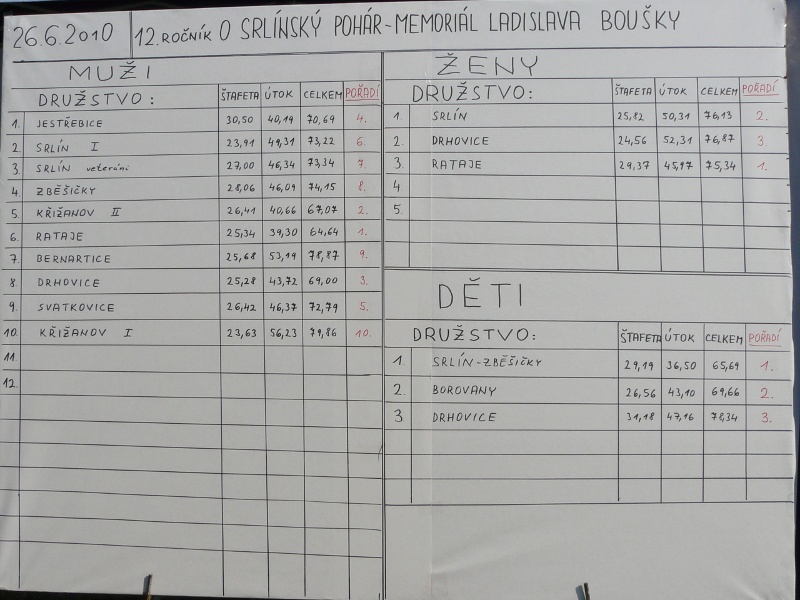 26.6.2010 12. ROČNÍK O SRLÍNSKÝ POHÁR-MEMORIÁL LADISLAVA BOUŠKY
MUŽI
DRUŽSTVO: ŠTAFETA ÚTOK CELKEM POŘADÍ
1. JESTŘEBICE 30,50 40,19 70,69 4.
2. SRLÍN I 23,91 49,31 73,22 6.
3. SRLÍN veteráni 27,00 46,34 73,34 7.
4. ZBĚŠIČKY 28,06 46,09 74,15 8.
5. KŘIŽANOV II 26,41 40,66 67,07 2.
6. RATAJE 25,34 39,30 64,64 1.
7. BERNARTICE 25,68 53,19 78,87 9.
8. DRHOVICE 25,28 43,72 69,00 3.
9. SVATKOVICE 26,42 46,37 72,79 5.
10. KŘIŽANOV I 23,63 56,23 79,86 10.
11.
12.
ŽENY
DRUŽSTVO: ŠTAFETA ÚTOK CELKEM POŘADÍ
1. SRLÍN 25,82 50,31 76,13 2.
2. DRHOVICE 24,56 52,31 76,87 3.
3. RATAJE 29,37 45,97 75,34 1.
4
5.
DĚTI
DRUŽSTVO: ŠTAFETA ÚTOK CELKEM POŘADÍ
1. SRLÍN-ZBĚŠIČKY 29,19 36,50 65,69 1.
2. BOROVANY 26,56 43,10 69,66 2.
3. DRHOVICE 31,18 47,16 78,34 3.